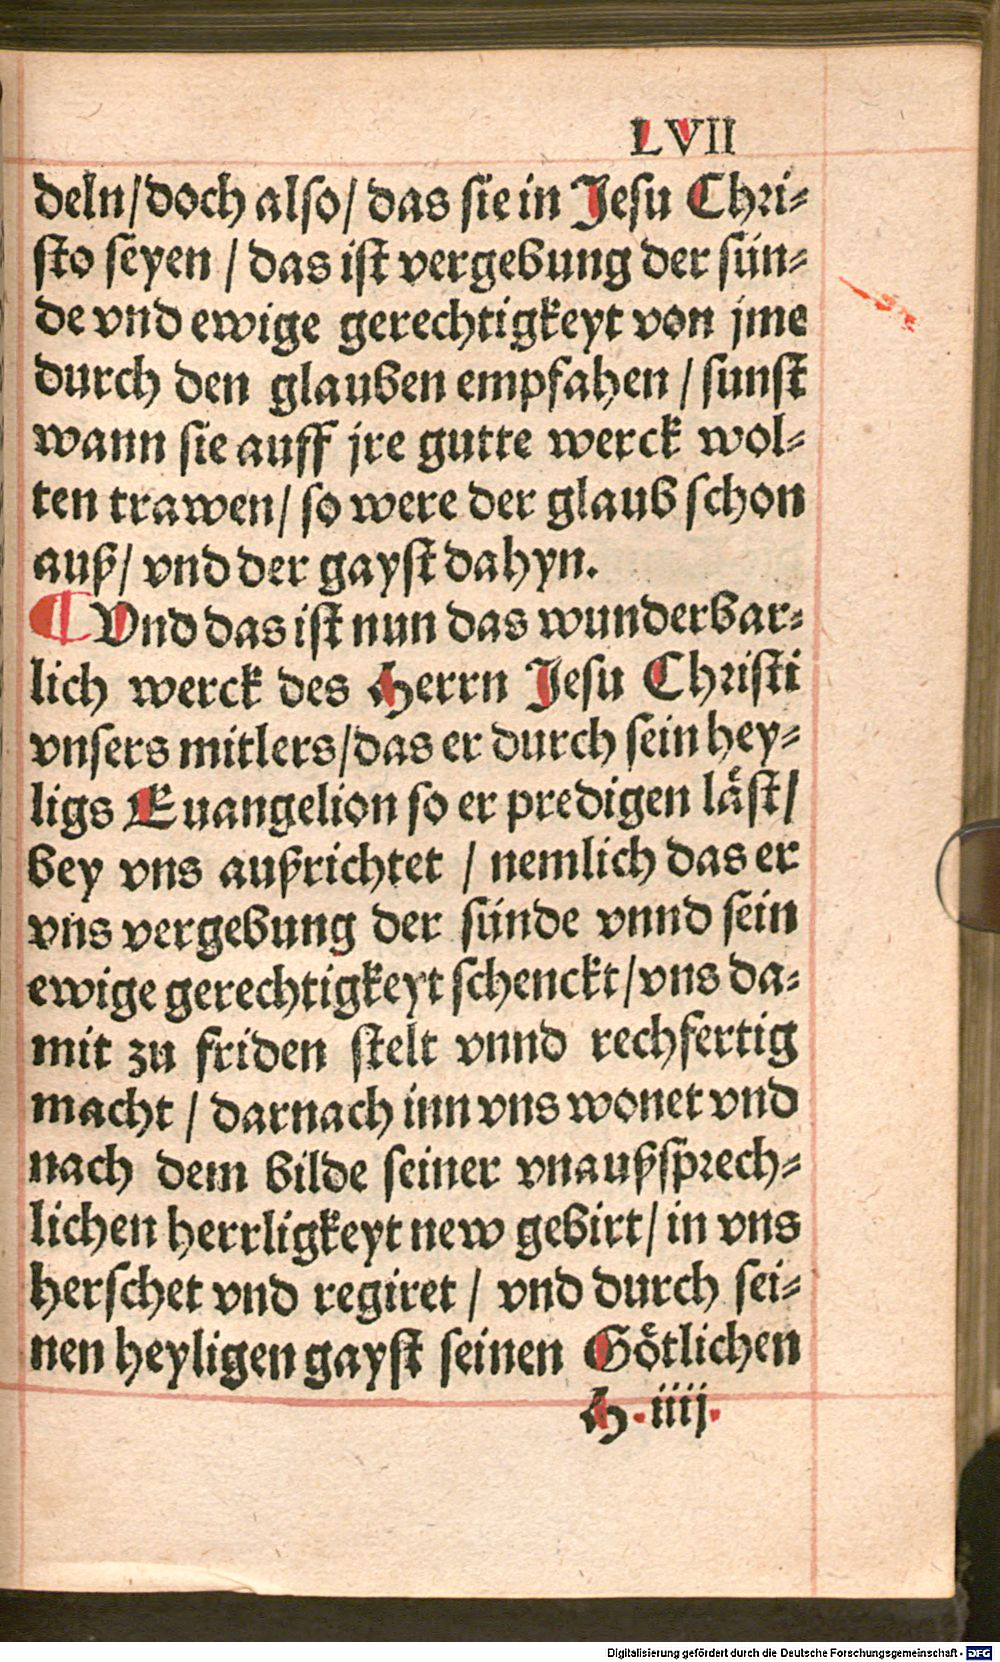 LVII
deln/doch also/ das sie in Jesu Chri-
sto seyen / das ist vergebung der sün-
de vnd ewige gerechtigkeyt von jme
durch den glauben empfahen / sunst
wann sie auff jre gutte werck wol-
ten trawen/ so were der glaub schon
auß/ vnd der gayst dahyn.
¶ Vnd das ist nun das wunderbar-
lich werck des Herrn Jesu Christi
vnsers mitlers/das er durch sein hey-
ligs Euangelion so er predigen läst/
bey vns außrichtet / nemlich das er
vns vergebung der sünde vnnd sein
ewige gerechtigkeyt schenckt/vns da-
mit zu friden stelt vnnd rechfertig
macht / darnach inn vns wonet vnd
nach dem bilde seiner vnaußsprech-
lichen herrligkeyt new gebirt/ in vns
herschet vnd regiret / vnd durch sei-
nen heyligen gayst seinen Götlichen
H.iiij.
Digitalisierung gefördert durch die Deutsche Forschungsgemeinschaft - DFG